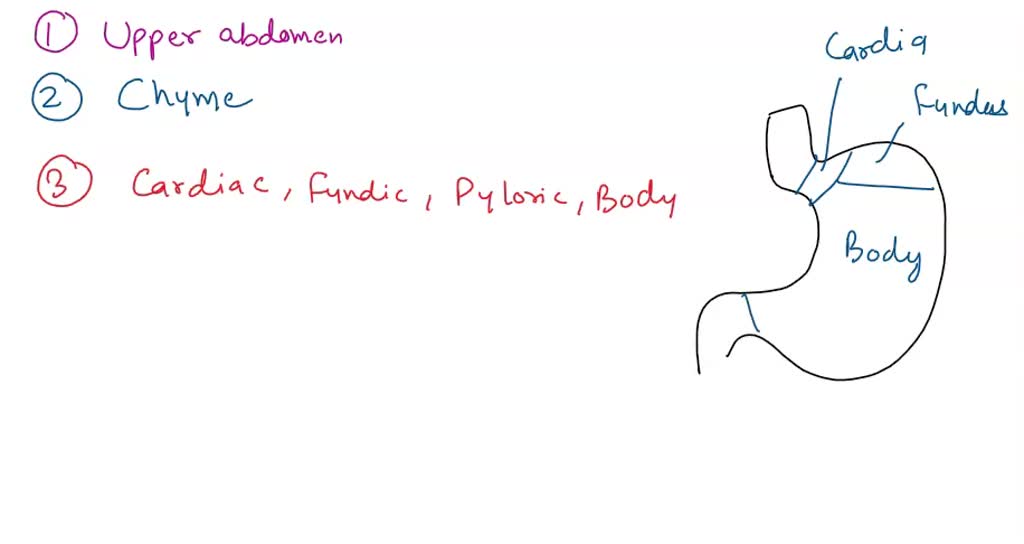 ① Upper abdomen
② Chyme
③ Cardiac, Fundic, Pyloric, Body
Cardia
Fundus
Body